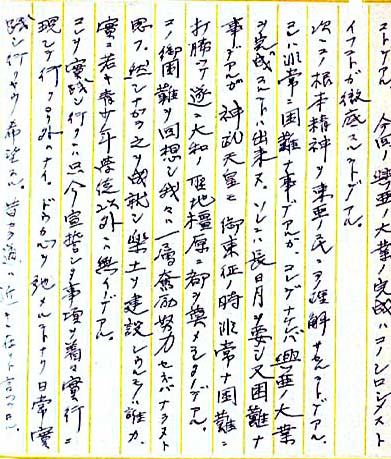 トデアル 今回興亜ノ大業ノ完成ハコノシロシンスト
イフコトガ徹底スルコトデアル。
次ニコノ根本精神ヲ東亜ノ民ニヨク理解サセルコトデアル。
コレハ非常ニ困難ナ事デアルガ、コレデナケレバ興亜ノ大業
ヲ完成スルコトハ出来ヌ。ソレニハ長日月ヲ要シ又困難ナ
事デアルガ 神武天皇モ御東征ノ時非常ナ困難ニ
打勝ツテ遂ニ大和ノ聖地橿原ニ都ヲ奠メラレタノデアル。
コノ御困難ヲ回想シ我々ハ一層奮励努力セネバナラヌト
思フ。然シナガラ之ヲ成就シ楽土ヲ建設シウルモノハ誰カ、
実ニ若キ青少年学徒以外ニ無イノデアル。
コレヲ実践シ行クニハ只今宣誓シタ事項ヲ着々実行ニ
現シテ行クヨリ外ハナイ。ドウカ心ヲ弛メルコトナク日常実
践シ行クヤウ希望スル。昔カラ道ハ近キニ在リト言ハレル。